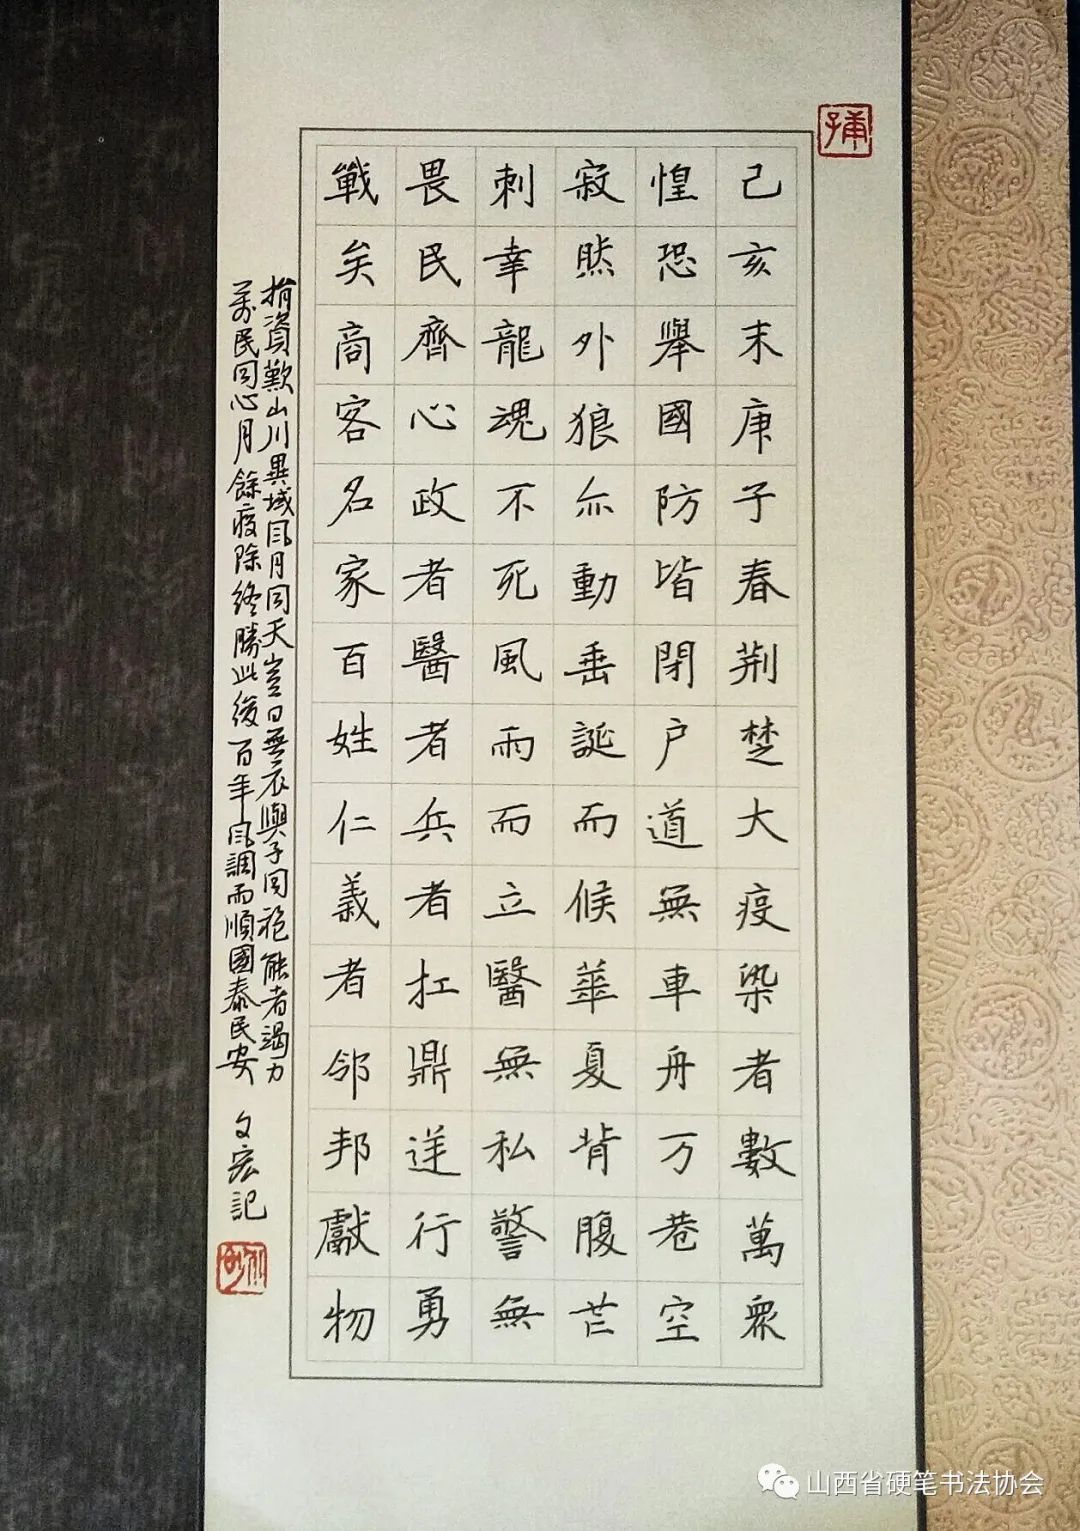 己亥末庚子春荆楚大疫染者數萬眾
惶恐舉國防皆閉户道無車舟万巷空
寂然外狼亦動垂誕而候華夏背腹芒
刺幸龍魂不死風雨而立醫無私警無
畏民齊心政者醫者兵者扛鼎逆行勇
戰矣商客名家百姓仁義者邻邦獻物
捐資歎山川異域風月同天豈曰無衣與子同袍能者竭力
萬民同心月餘疫除終勝此後百年風調雨順國泰民安
文宏記
山西省硬笔书法协会